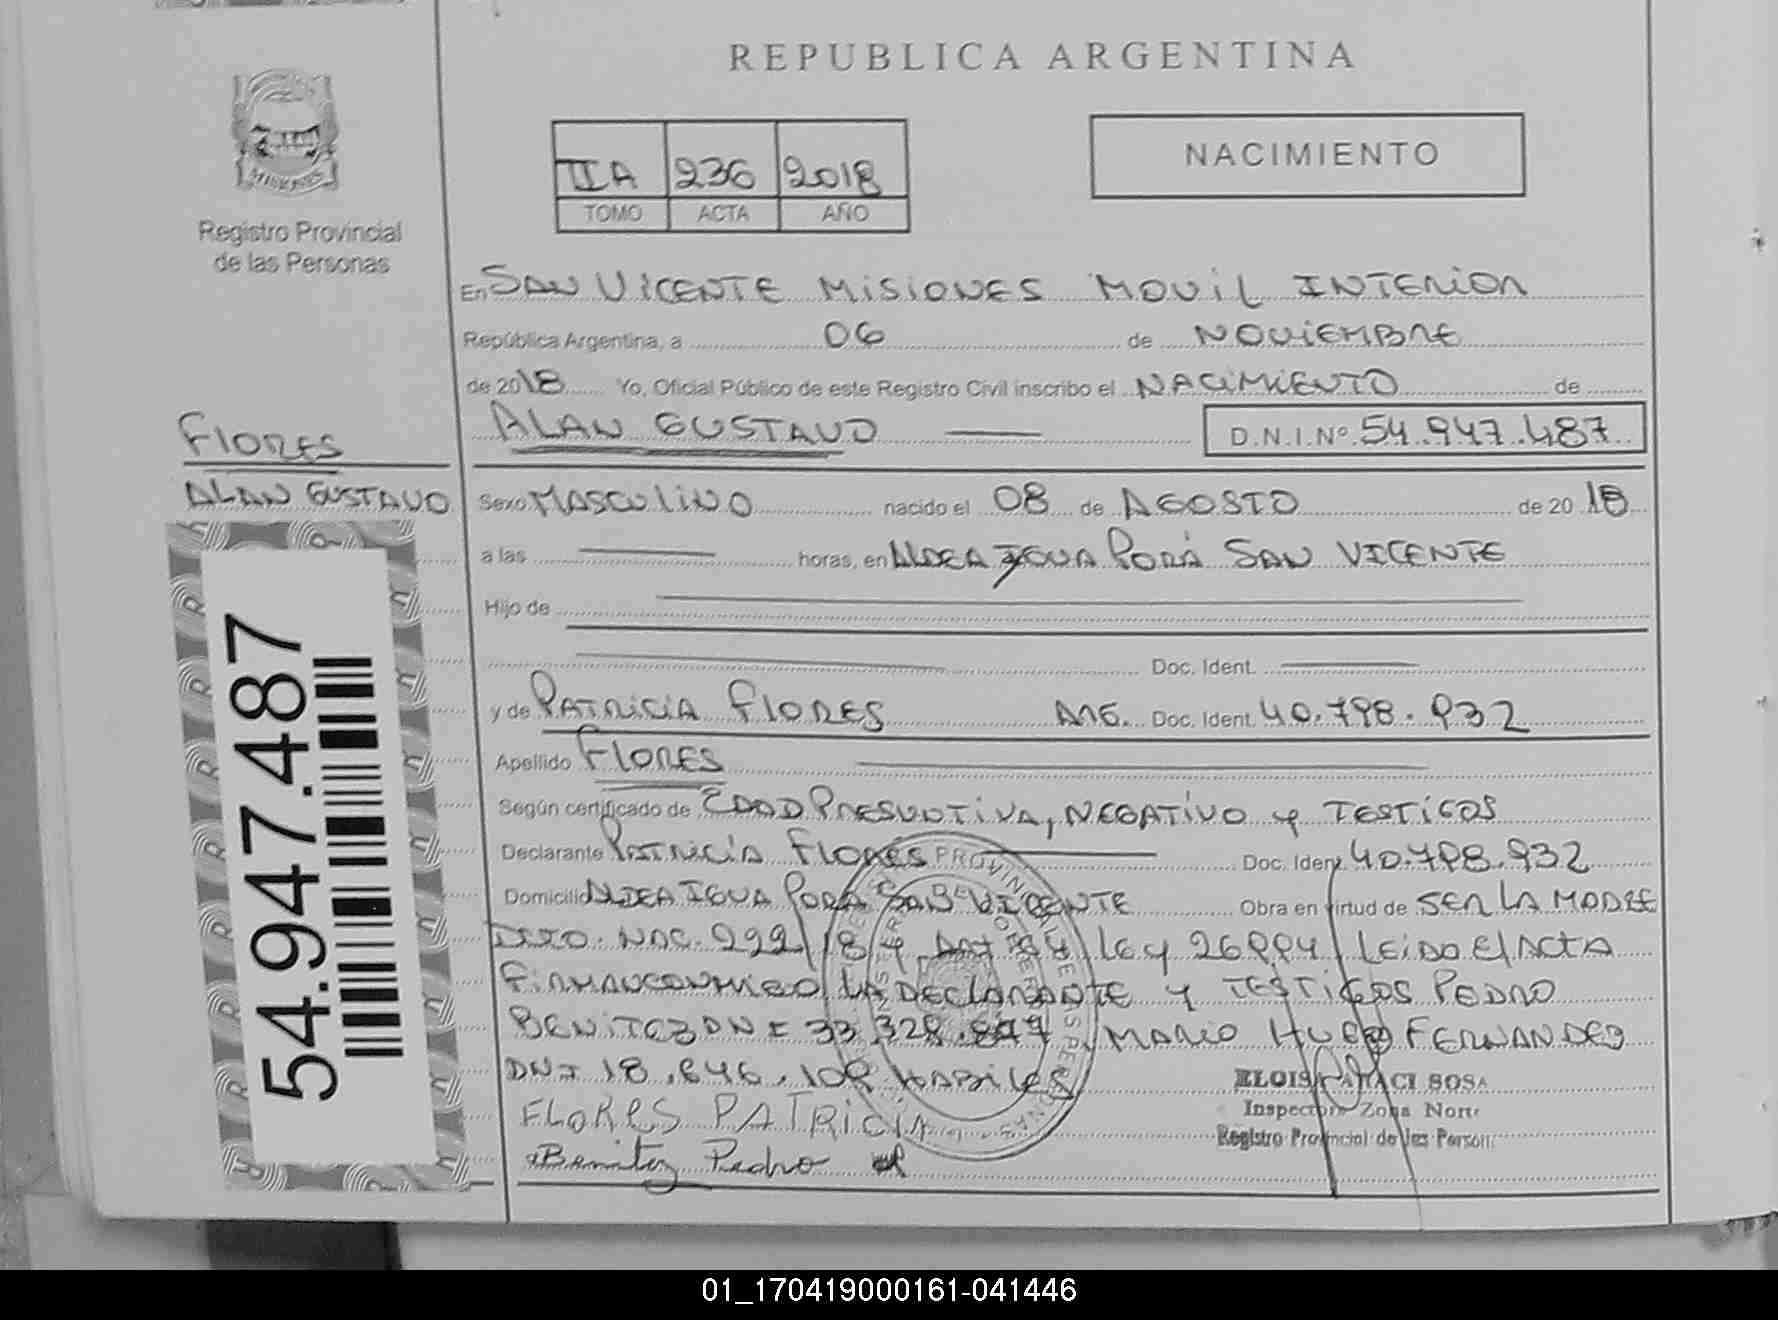 REPUBLICA ARGENTINA
MISIONES
Registro Provincial
de las Personas
IIA 236 2018
TOMO ACTA AÑO
NACIMIENTO
En SAN VICENTE MISIONES MOVIL INTERIOR
República Argentina, a 06 de NOVIEMBRE
de 2018 Yo, Oficial Público de este Registro Civil inscribo el NACIMIENTO de
FLORES
ALAN GUSTAVO
ALAN GUSTAVO D.N.I.Nº 54.947.487
Sexo MASCULINO nacido el 08 de AGOSTO de 2018
a las horas, en ALDEA IGUA PORÁ SAN VICENTE
Hijo de
Doc. Ident.
y de PATRICIA FLORES ARG. Doc. Ident. 40.798.932
Apellido FLORES
Según certificado de EDAD PRESUNTIVA, NEGATIVO y TESTIGOS
Declarante PATRICIA FLORES Doc. Ident. 40.798.932
Domicilio ALDEA IGUA PORÁ SAN VICENTE Obra en virtud de SER LA MADRE
DCTO. NAC. 222/18 y LEY 26994 LEIDO El ACTA
FIRMAN CONMIGO LA DECLARANTE Y TESTIGOS PEDRO
BENITEZ DNI 33.328. MARIO HUGO FERNANDEZ
DNI 18.646.109 HABILES
FLORES PATRICIA
Benitez Pedro
ELOISA SOSA
Inspectora Zona Norte
Registro Provincial de las Person
54.947.487
01_170419000161-041446